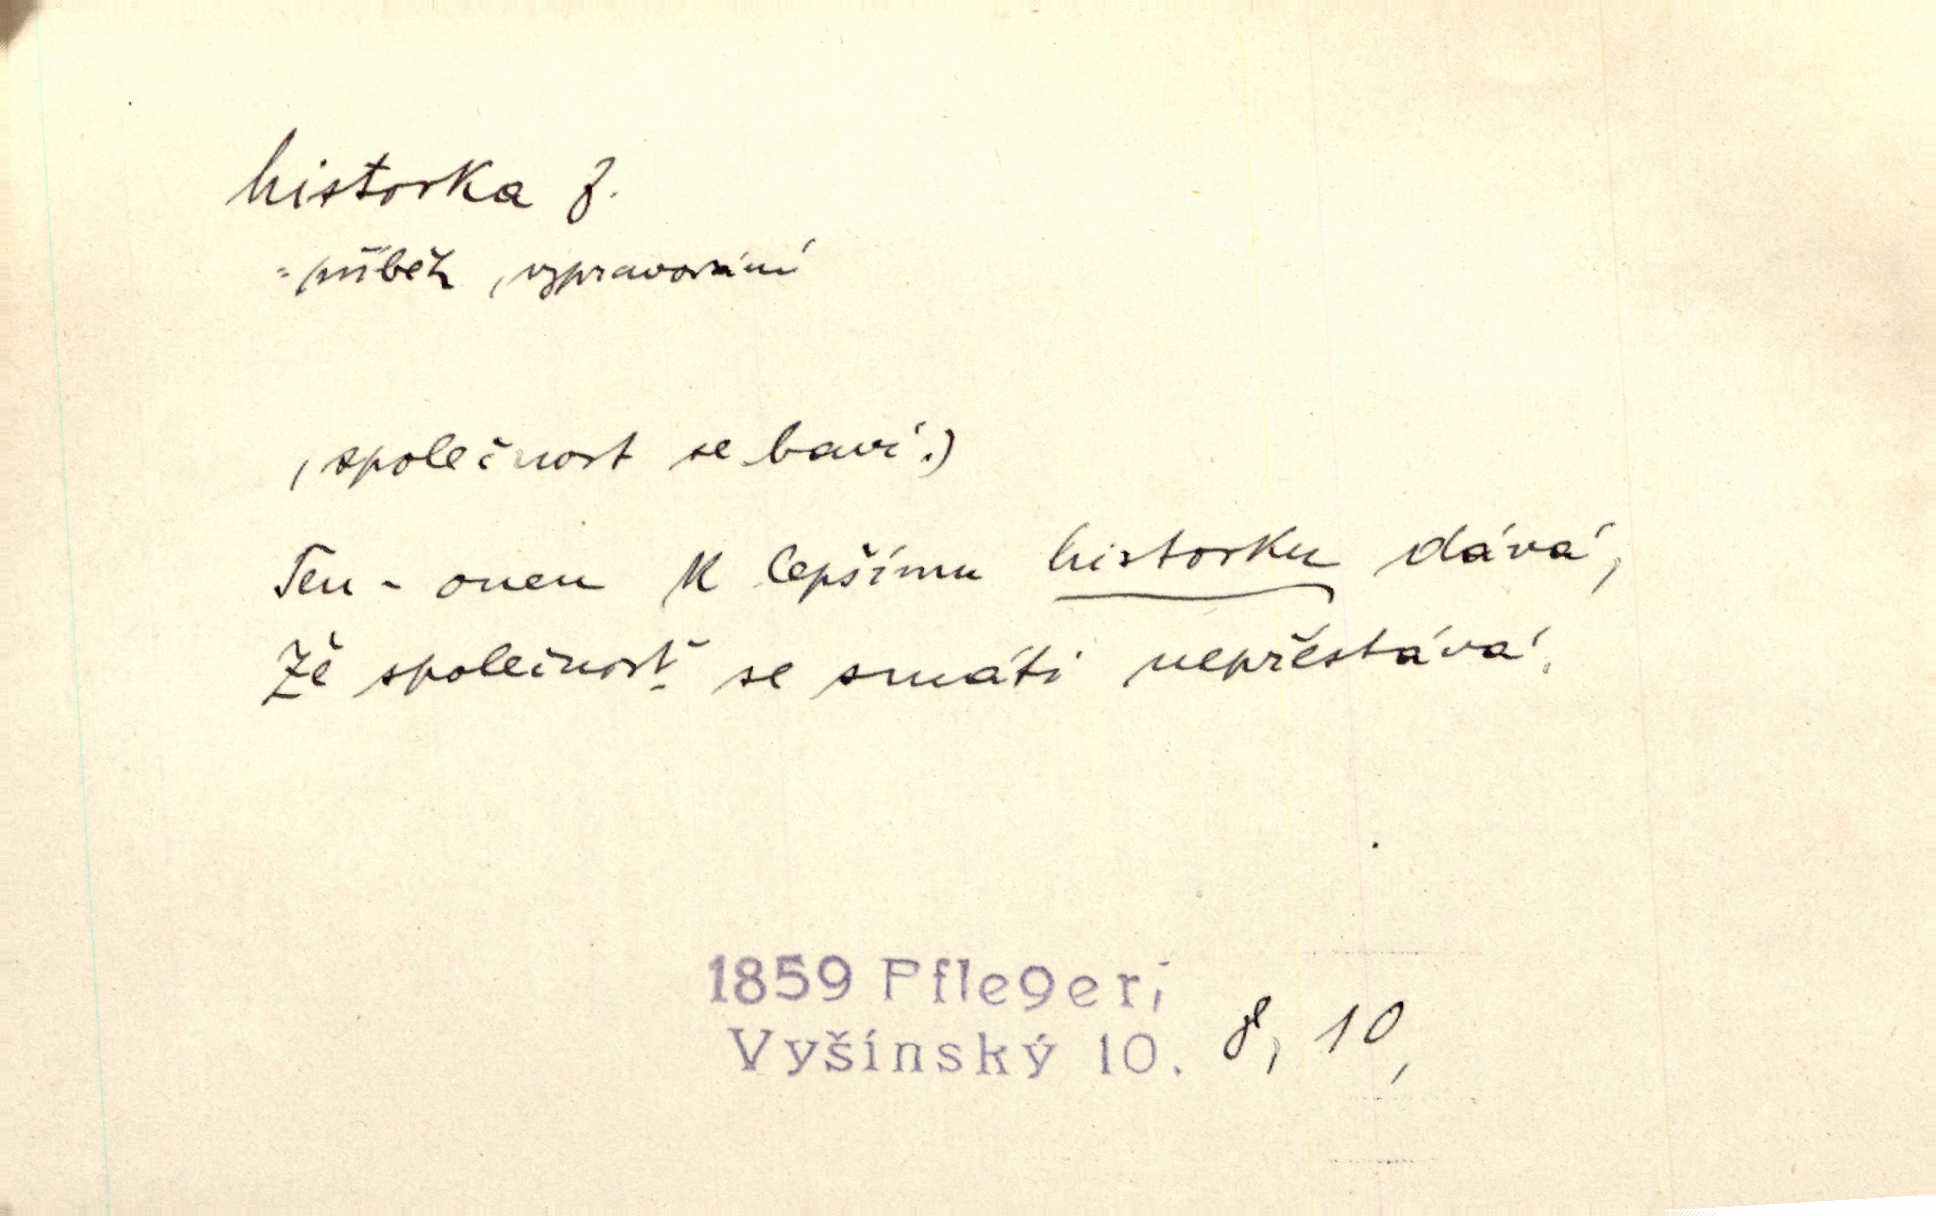 historka f.
= příběh, vypravování
(společnost se baví.)
Ten - onen k lepšímu historku dává,
že společnosť se smáti nepřestává.
1859 Pfleger,
Vyšínský 10. 8, 10,